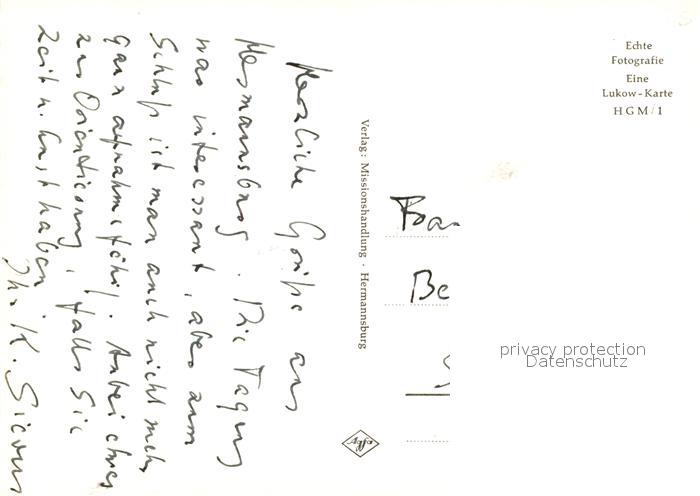 Herzliche Grüße aus
Hermannsburg. Die Tagung
war interessant, aber am
Schluß ist man auch nicht mehr
ganz aufnahmefähig. Anbei etwas
zur Orientierung, falls Sie
Zeit u. Lust haben
Ihr K.
Verlag: Missionshandlung · Hermannsburg
Agfa
Echte
Fotografie
Eine
Lukow-Karte
HGM/1
privacy protection
Datenschutz